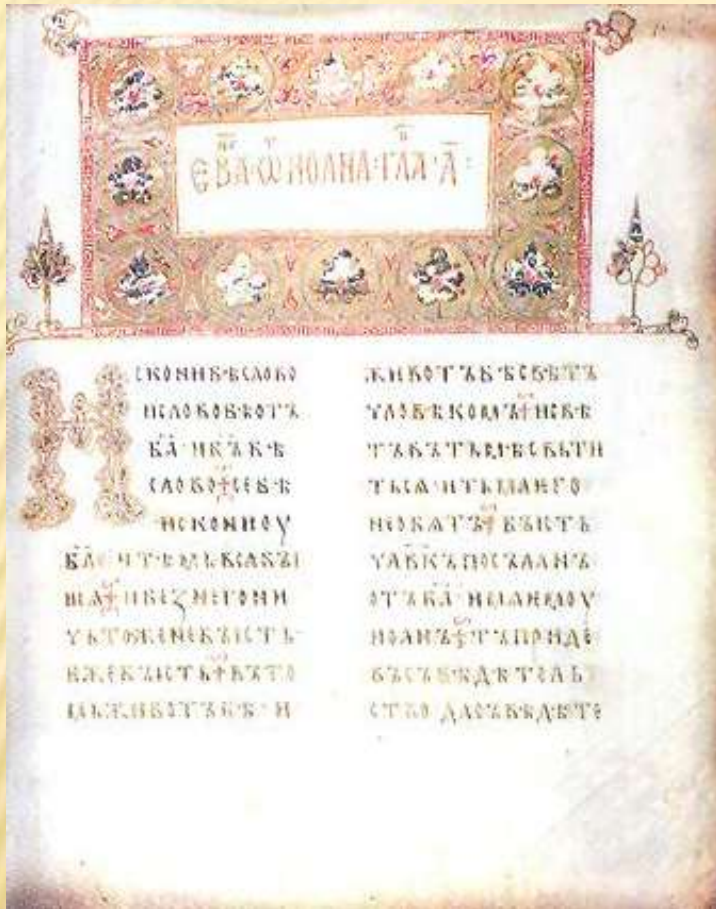 ЕВА ѾИОАНА·ГЛА·А҃:
ИСКОНИБѢСЛОВО
ИСЛОВОБѢОТЪ
БА҃·ИБЪ҃БѢ
СЛОВО СЕБѢ
ИСКОНИОУ
БА҃ИТѢМЬВСѦБЫ
ША ИБЕЗНЕГОНИ
ЧЬТОЖЕНЕБЫСТЬ·
ЕЖЕБЫСТЬ ВЪТО
МЬЖИВОТЪБѢ·И
ЖИВОТЪБѢСВѢТЪ
ЧЛОВѢКОМЪ ИСВѢ
ТЪВЪТЬМѢСВЬТИ
ТЬСѦ·ИТЬМАЕГО
НЕОБѦТЪ БЫСТЬ
ЧЛВ҃КЪПОСЪЛАНЪ
ОТЪБА҃·ИМѦѤМОУ
ИОАНЪ ТЪПРИДЕ
ВЪСЪВѢДѢТЕЛЬ
СТВО ДАСЪВѢДѢТЕ